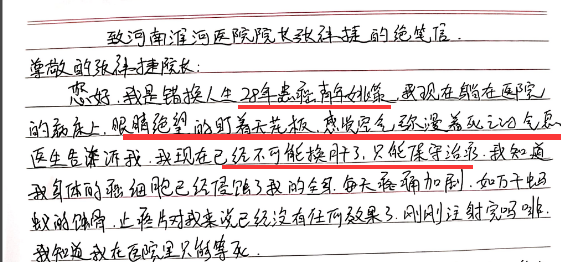 致河南淮河医院院长张祎捷的绝笔信.
尊敬的张祎捷院长:
您好.我是错换人生28年患癌青年姚策.我现在躺在医院
的病床上,眼睛绝望的盯着天花板,感觉空气弥漫着死亡的气息
医生告诉我.我现在已经不可能换肝了,只能保守治疗.我知道
我身体的癌细胞已经侵蚀了我的全身.每天疼痛加剧.如万千蚂
蚁的蚀骨.止疼片对我来说已经没有任何效果了.刚刚注射完吗啡.
我知道我在医院里只能等死.